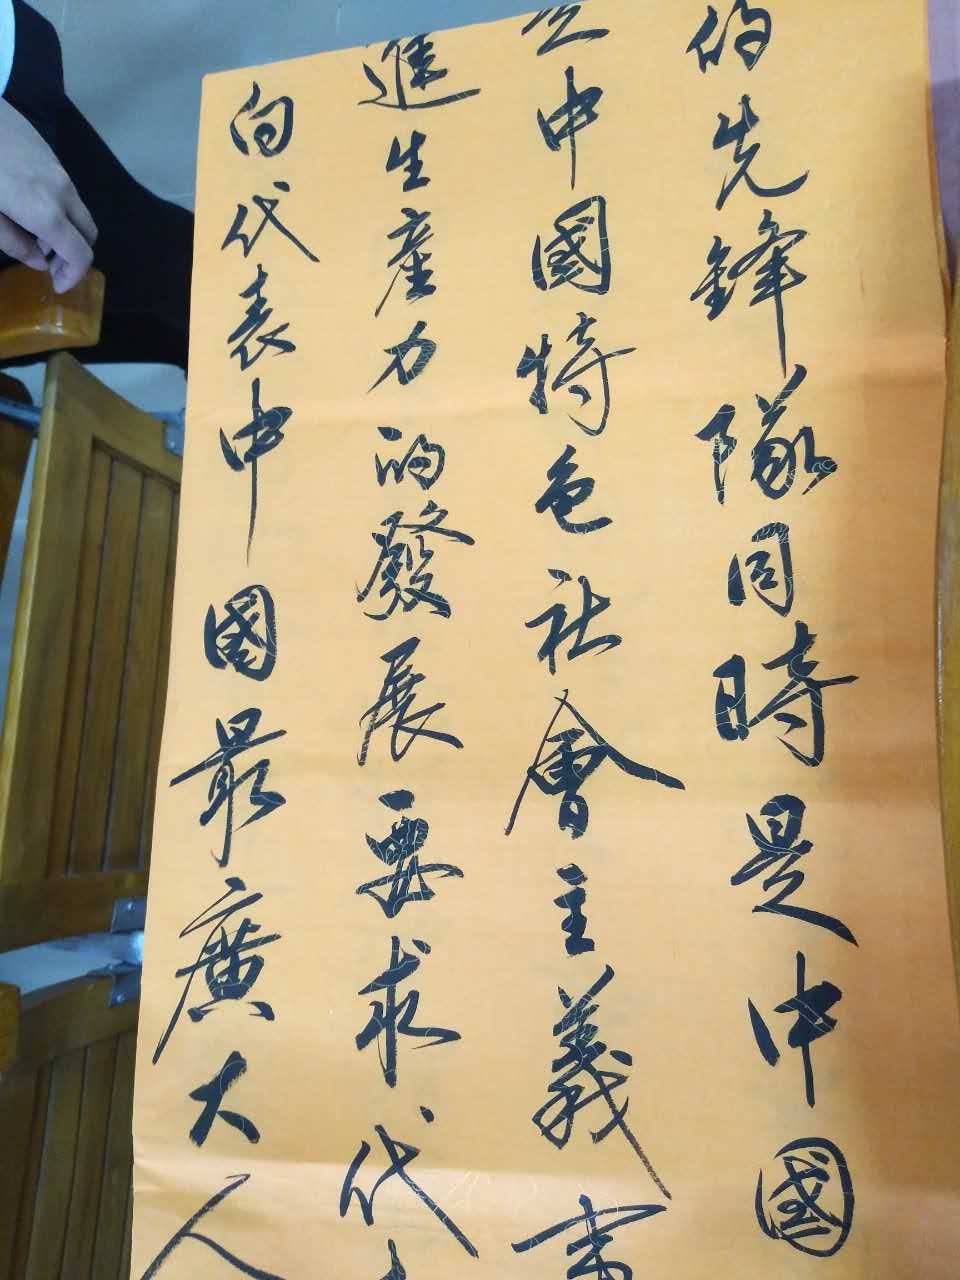 的先鋒隊同時是中國
中國特色社會主義事
進生產力的發展要求代
向代表中國最廣大人